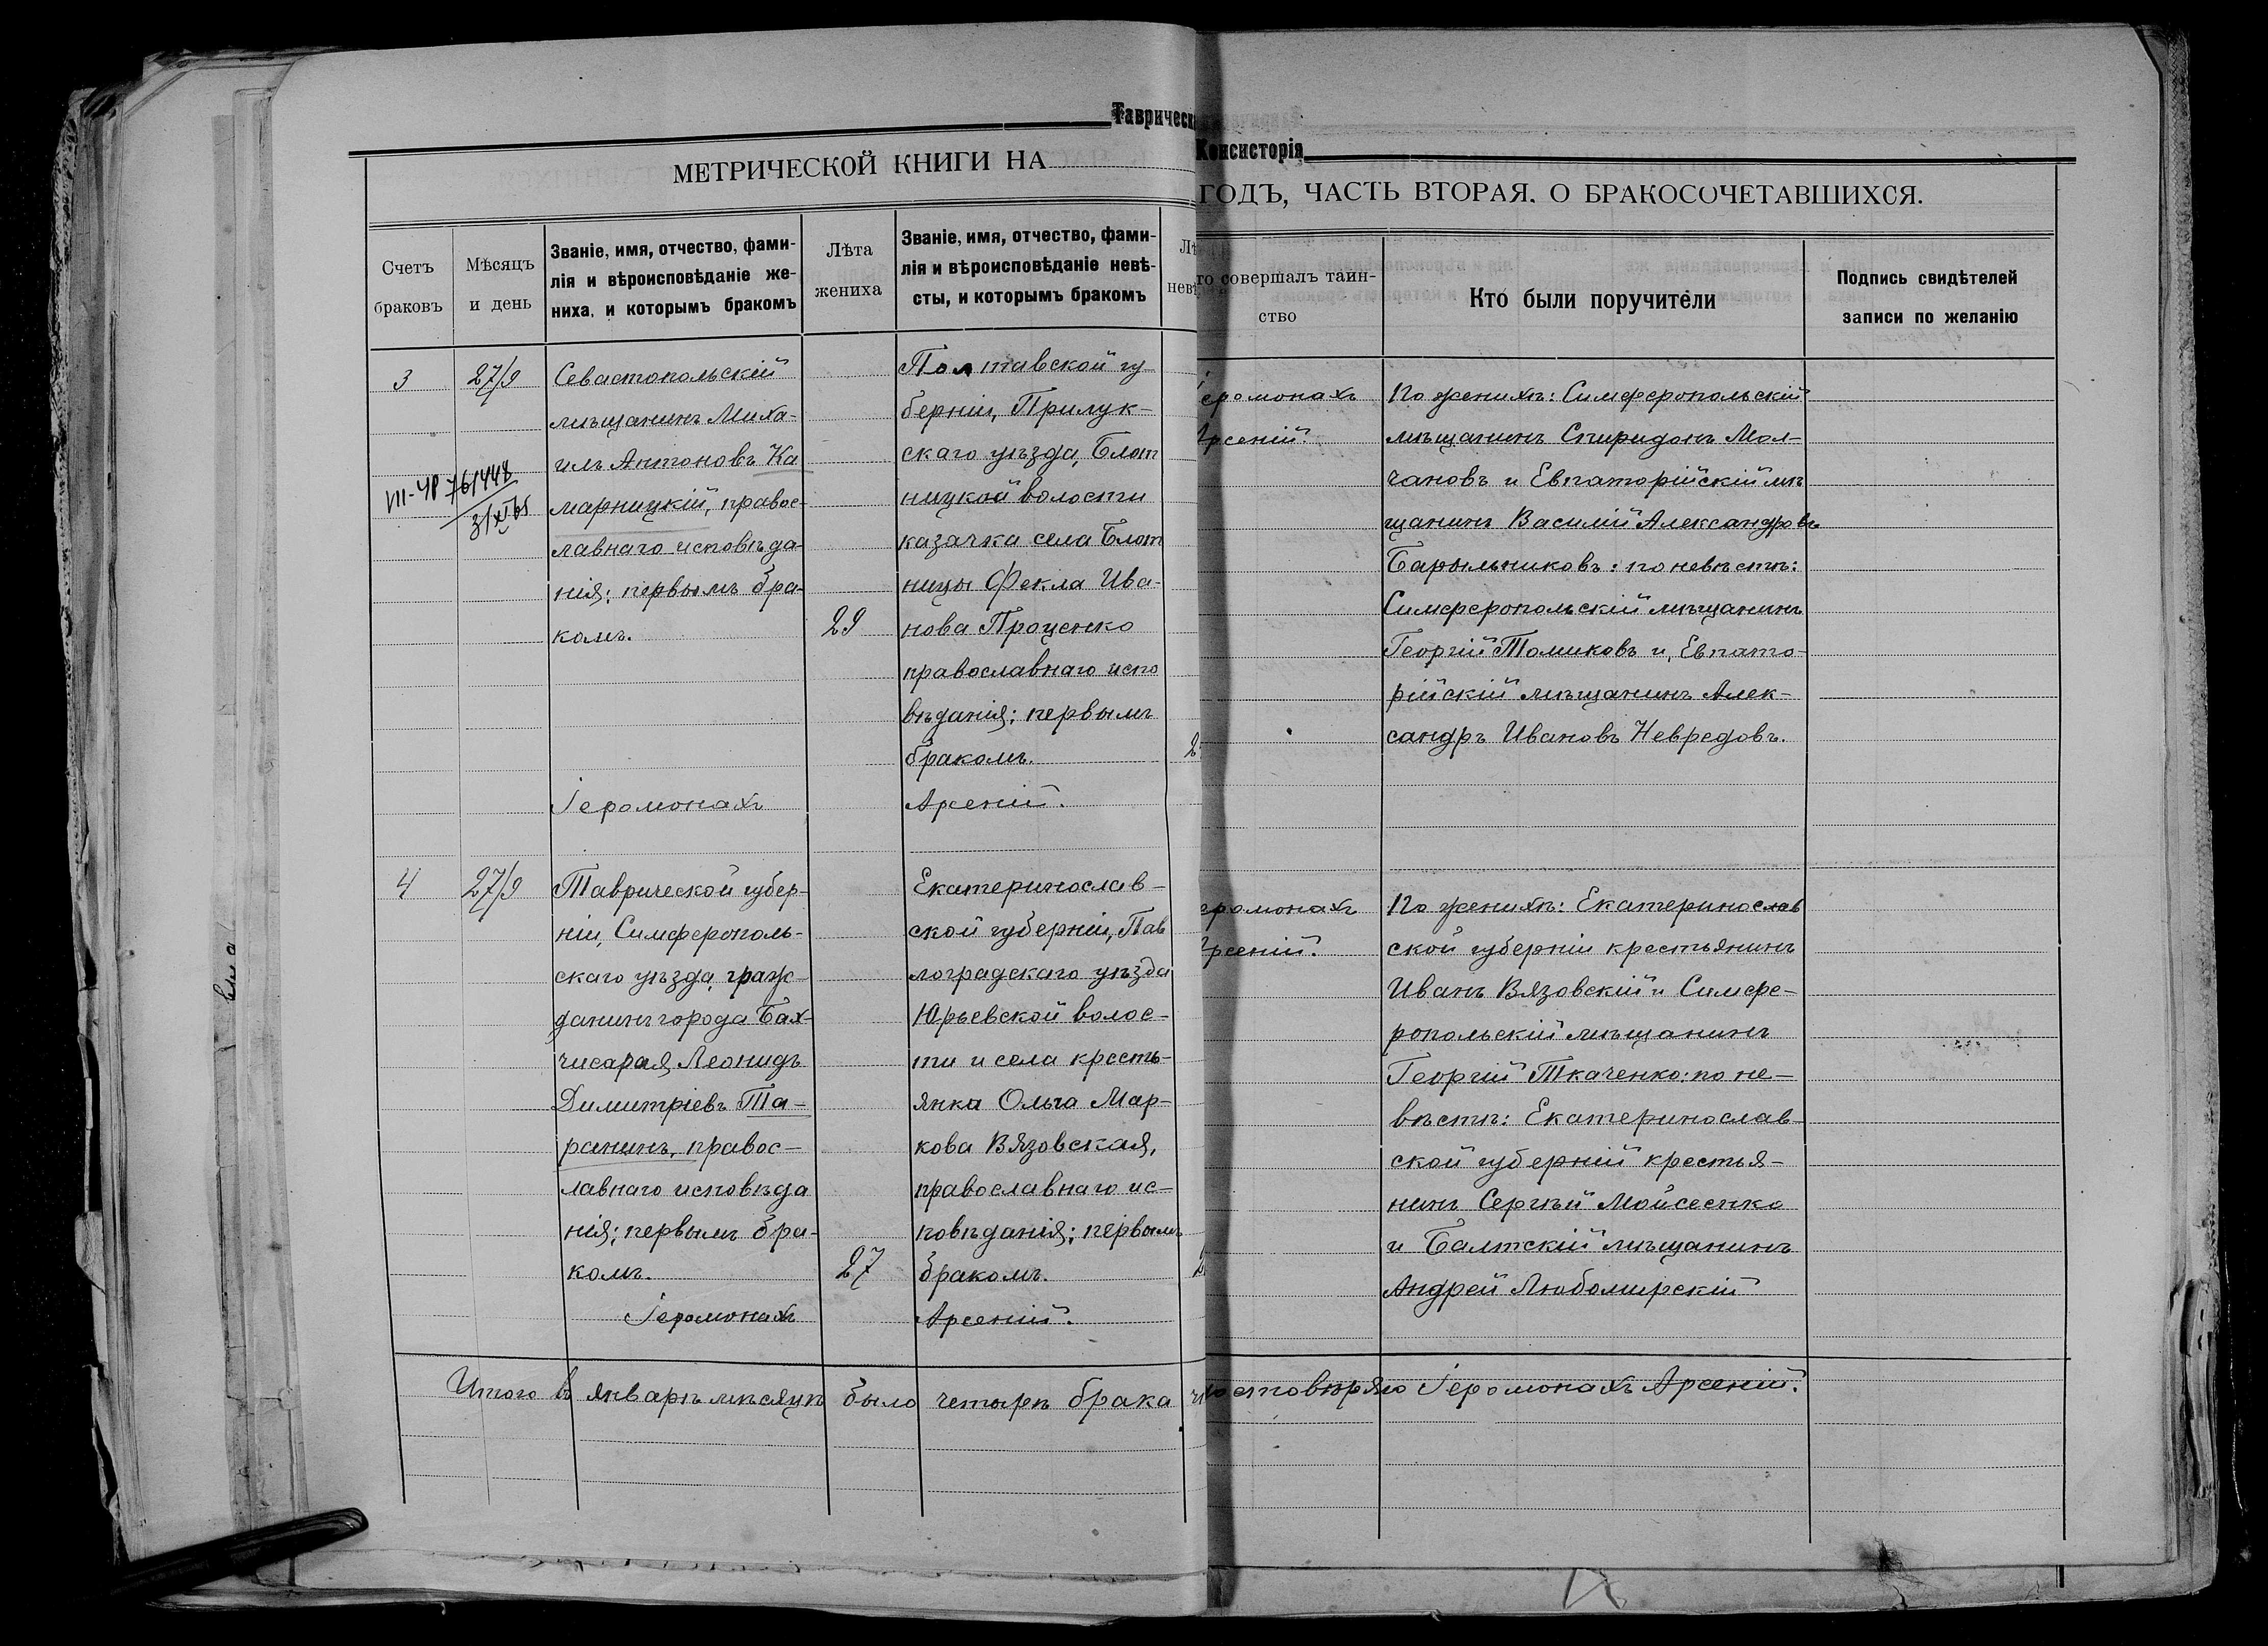 Таврическ
Консисторія
МЕТРИЧЕСКОЙ КНИГИ НА
ГОДЪ, ЧАСТЬ ВТОРАЯ, О БРАКОСОЧЕТАВШИХСЯ.
Счетъ
браковъ
Мѣсяцъ
и день
Званіе, имя, отчество, фами-
лія и вѣроисповѣданіе же-
ниха, и которымъ бракомъ
Лѣта
жениха
Званіе, имя, отчество, фами-
лія и вѣроисповѣданіе невѣ-
сты, и которымъ бракомъ
Лѣ
невѣ
то совершалъ таин-
ство
Кто были поручители
Подпись свидѣтелей
записи по желанію
3
27/9
Севастопольскій
мѣщанинъ Миха-
илъ Антоновъ Ка
марницкій, правос-
лавнаго исповѣда-
нія; первымъ бра-
комъ.
29
Іеромонахъ
Полтавской гу
берніи, Прилук-
скаго уѣзда, Блот
ницкой волости
казачка села Блот
ницы Фекла Ива-
нова Проценко
православнаго испо
вѣданія; первымъ
бракомъ.
2
Арсеній.
еромонахъ
Арсеній.
По женихѣ: Симферопольскій
мѣщанинъ Спиридонъ Мол-
чановъ и Евпаторійскій мѣ
щанинъ Василій Александровъ
Барыльниковъ: по невѣстѣ:
Симферопольскій мѣщанинъ
Георгій Томиковъ и, Евпато-
рійскій мѣщанинъ Алек-
сандръ Ивановъ Невредовъ.
VII-ЧР 761448
31/XI 61
4
27/9
Таврической губер-
ніи, Симферополь-
скаго уѣзда, граж-
данинъ города Бах-
чисарая, Леонидъ
Димитріевъ Та-
ранинъ, правос-
лавнаго исповѣда
нія; первымъ бра-
комъ.
27
Іеромонахъ
Екатеринослав-
ской губерніи, Пав
лоградскаго уѣзда
Юрьевской волос-
ти и села кресть-
янка Ольга Мар-
кова Вязовская,
православнаго ис-
повѣданія; первымъ
бракомъ.
2
Арсеній.
еромонахъ
Арсеній.
По женихѣ: Екатеринослав
ской губерніи крестьянинъ
Иванъ Вязовскій и Симфе-
ропольскій мѣщанинъ
Георгій Ткаченко: по не-
вѣстѣ: Екатеринослав-
ской губерніи крестья-
нинъ Сергѣй Мойсеенко
и Балтскій мѣщанинъ
Андрей Любомирскій
Итого въ январѣ мѣсяцѣ было четырѣ брака ч
достовѣряю Іеромонахъ Арсеній.